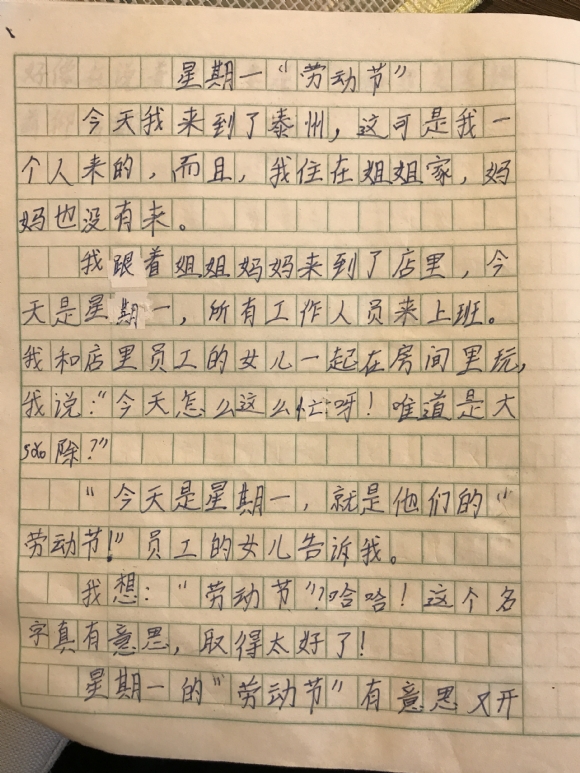 星期一“劳动节”
今天我来到了泰州，这可是我一
个人来的，而且，我住在姐姐家，妈
妈也没有来。
我跟着姐姐妈妈来到了店里，今
天是星期一，所有工作人员来上班。
我和店里员工的女儿一起在房间里玩，
我说：“今天怎么这么忙呀！唯道是大
sǎo除？”
“今天是星期一，就是他们的“
劳动节！”员工的女儿告诉我。
我想：“劳动节”？哈哈！这个名
字真有意思，取得太好了！
星期一的“劳动节”有意思又开